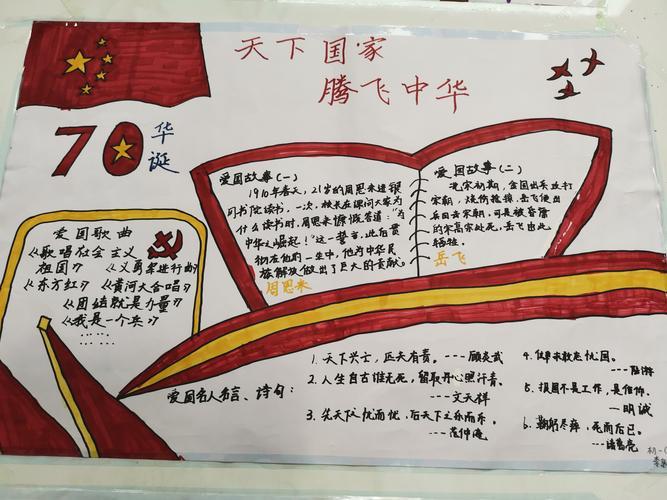 天下国家
腾飞中华
70 华诞
爱国歌曲
《歌唱社会主义
祖国》 《义勇军进行曲》
《东方红》《黄河大合唱》
《团结就是力量》
《我是一个兵》
……
爱国故事(一)
1910年春天,21岁的周恩来进银
冈书院读书,一次,校长在课间大家为
什么读书时,周恩来慷慨答道:"为
中华之崛起!"这一誓言,此后贯
彻在他们一生中,他为中华民
族解放做出了巨大的贡献。
周恩来
爱国故事(二)
宋初期,金国出兵攻打
宋朝,烧伤抢掠,岳飞便出
兵回击宋朝,可是被昏庸
的宋高宗处死,岳飞由此
牺牲。
岳飞
爱国名人名言、诗句:
1. 天下兴亡,匹夫有责。---顾炎武
2. 人生自古谁无死,留取丹心照汗青。
---文天祥
3. 先天下之忧而忧,后天下之乐而乐。
---范仲淹
4. 位卑未敢忘忧国。
---陆游
5. 报国不是工作,是信仰。
—明诚
6. 鞠躬尽瘁,死而后已。
---诸葛亮
初一